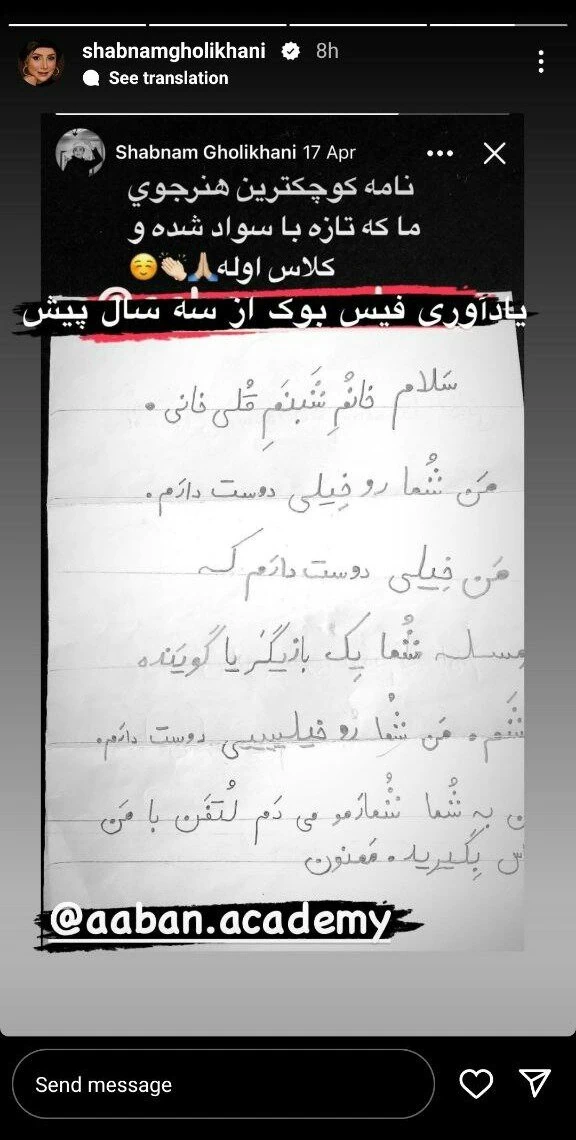 shabnamgholikhani 8h
See translation
Shabnam Gholikhani 17 Apr
نامه کوچکترین هنرجوي
ما که تازه با سواد شده و
کلاس اوله🙏🏻👏🏻☺️
یادآوری فیس بوک از سه سال پیش
سَلام خانُمِ شَبنَمِ قُلی خانی .
مَن شُما رو خِیلی دوست دارَم .
مَن خِیلی دوست دارَم که
مِسله شُما یِک بازیگَر یا گویَنده
شَم . مَن شُما رو خیلیییی دوست دارَم .
ن به شُما شُمارَمو می دَم لُتفَن با مَن
اس بِگیرید . مَمنون
@aaban.academy
Send message